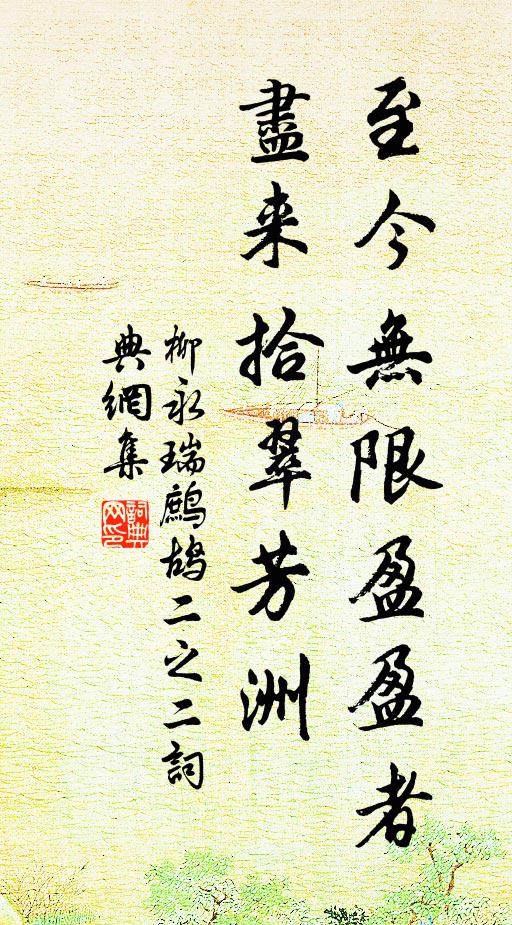 至今無限盈盈者
盡来拾翠芳洲
柳永瑞鷓鴣二之二詞
典網集
詞典
网印